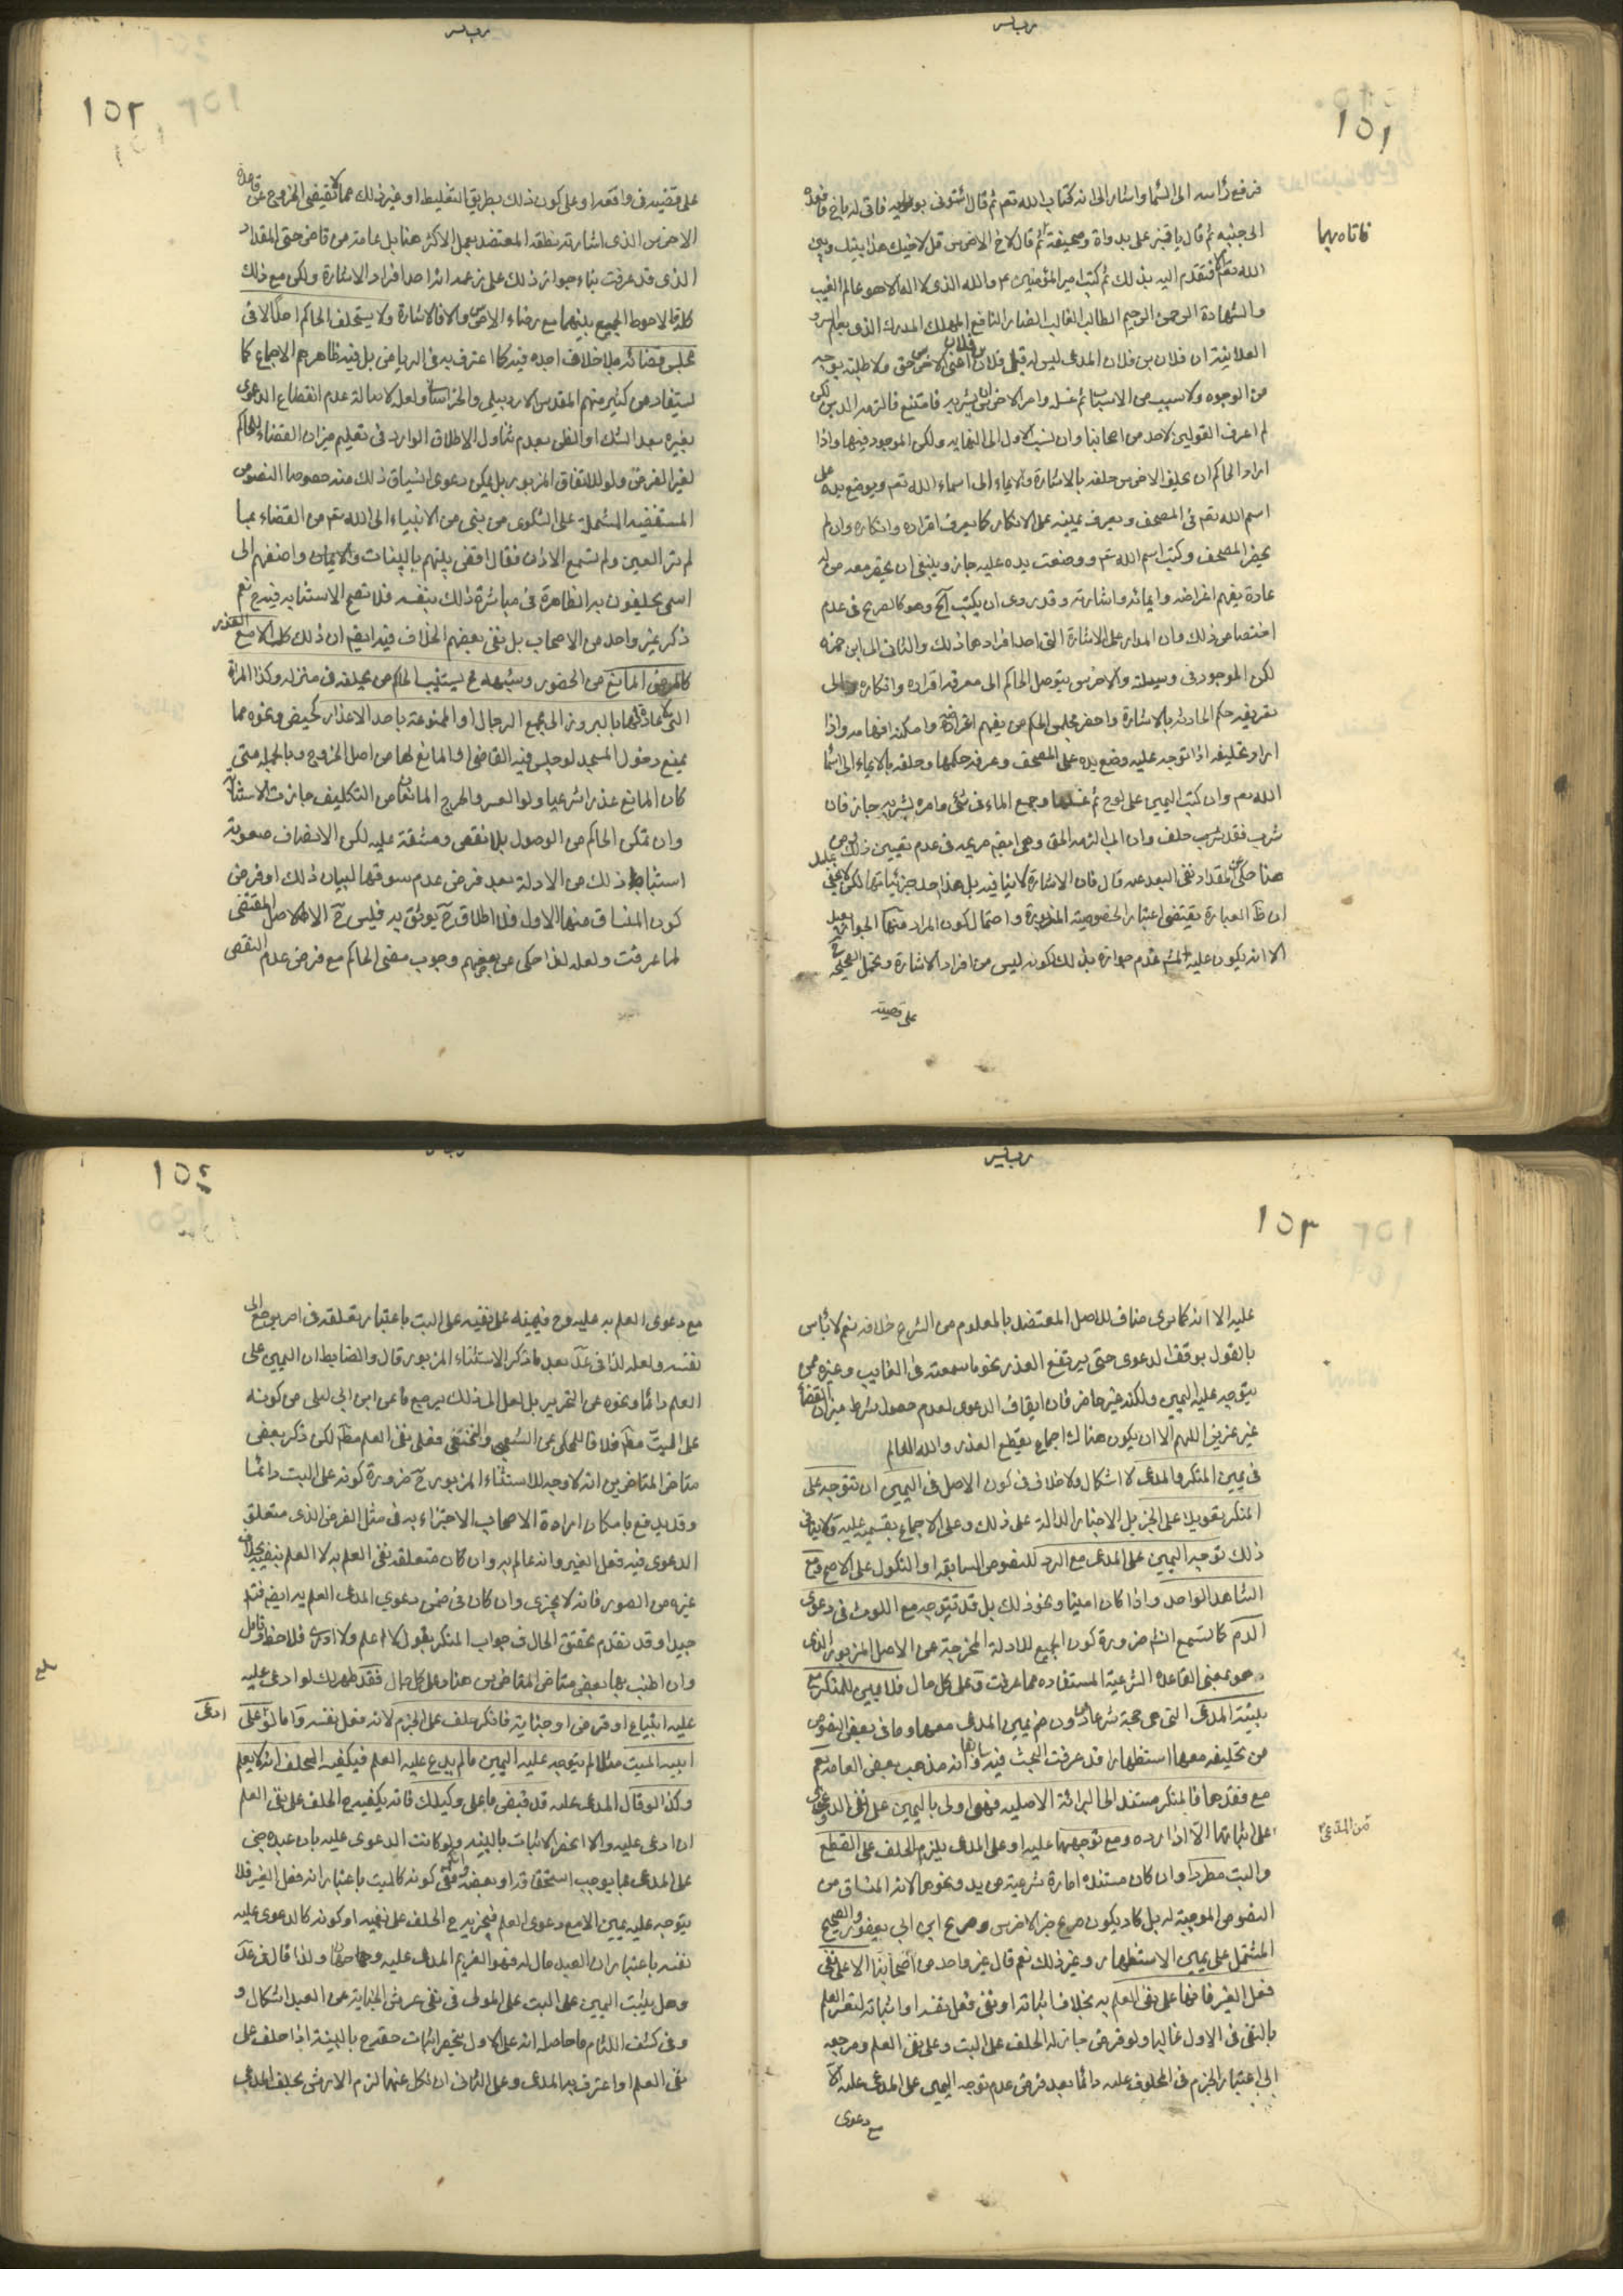 ١٥١
فرفع رأسه الى السماء واشار الى انه كتاب الله تعم ثم قال ائتونى بوليه فاتى له باخ فاقعده
الى جنبه ثم قال يا قنبر على بدواة وصحيفة ثم قال لاخ الاخرس قل لاخيك هذا بينك وبين
فاتاه بهما
الله تعم فتقدم اليه بذلك ثم كتب امير المؤمنين ع والله الذى لا اله الا هو عالم الغيب
والشهادة الرحمن الرحيم الطالب الغالب الضار النافع المهلك المدرك الذى يعلم السر و
العلانية ان فلان بن فلان المدعى ليس له قبل فلان بن فلان اعنى الاخرس حق ولا طلبة بوجه
من الوجوه ولا سبب من الاسباب ثم غسله وامر الاخرس ان يشربه فامتنع فالزمه الدين لكن
لم اعرف القولين لاحد من اصحابنا وان نسب الاول الى النهايه ولكن الموجود فيها واذا
اراد الحاكم ان يحلف الاخرس حلفه بالاشارة والايماء الى اسماء الله تعم ويوضع يده على
اسم الله تعم فى المصحف ويعرف يمينه على الانكار كما يعرف اقراره وانكاره وان لم
يحضر المصحف وكتب اسم الله تعم ووضعت يده عليه جاز وينبغى ان يحضر معه من له
عادة بفهم اغراضه وايمائه واشارته وقد روى ان يكتب آلخ وهو كالصريح فى عدم
اختصاص ذلك وان المدار على الاشارة التى احد افرادها ذلك والثانى الى ابن حمزه
لكن الموجود فى وسيلته والاخرس يتوصل الحاكم الى معرفة اقراره وانكاره والى
تعريفه حكم الحادثه بالاشارة واحضر مجلس الحكم من يفهم اغراضه وامكنه افهامه واذا
اراد تحليفه اذا توجه عليه وضع يده على المصحف وعرفه حكمها وحلفه بالايماء الى اسماء
الله تعم وان كتب اليمين على لوح ثم غسلها وجمع الماء فى شئ وامره بشربه جاز فان
شرب فقد حلف وان ابى الزمه الحق وهى ايضا صريحه فى عدم تعيين ذلك
هنا حكى عن المقداد نفى البعد عنه قال فان الاشارة لا تنافيه بل هذا احد جزئياتها لكن لا يخفى
ان ظ العبارة يقتضى اعتبار الخصوصية المزبورة واحتمال كون المراد منها الجواز بعيد
الا انه يكون عليه عدم جوازه بذلك لكونه ليس من افراد الاشارة وتحمل الصحيحة
على قضية
١٥٢
على قضيه فى واقعه او على كون ذلك بطريق التغليظ او غير ذلك مما لا يقتضى الخروج عن قاعدة
الاخرس الذى اشارته نطقه المعتضد بعمل الاكثر هنا بل عامة من قاض حتى المقداد
الذى قد عرفت بناء جواز ذلك على زعمه انه احد افراد الاشارة ولكن مع ذلك
كله فالاحوط الجمع بينهما مع رضاء الاخرس والا فالاشارة ولا يستحلف الحاكم احدا الا فى
مجلس قضائه بلا خلاف اجده فيه كما اعترف به فى الرياض بل فيه ظاهرهم الاجماع كما
يستفاد من كثير منهم المقدس الاردبيلى والخراسانى ولعله لاصالة عدم انقطاع الدعوى
بغيره بعد الشك او الظن بعدم تناول الاطلاق الوارد فى تعليم ميزان القضاء للحاكم
لغير الفرض ولو للاتفاق المزبور بل يمكن دعوى انسياق ذلك منه خصوصا النصوص
المستفيضه المشتملة على الشكوى من نبى من الانبياء الى الله تعم من القضاء بما
لم تر العين ولم تسمع الاذن فقال اقض بينهم بالبينات والايمان واضفهم الى
اسمى يحلفون به الظاهرة فى مباشرة ذلك بنفسه فلا تصح الاستنابه فيه ح نعم
ذكر غير واحد من الاصحاب بل نفى بعضهم الخلاف فيه ايضا ان ذلك كله الا مع العذر
كالمرض المانع من الحضور وشبهه فح يستنيب الحاكم من يحلفه فى منزله وكذا المرأة
التى لا عادة لها بالبروز الى مجمع الرجال او الممنوعة باحد الاعذار كحيض ونحوه مما
يمنع دخول المسجد لو جلس فيه القاضى او المانع لها من اصل الخروج وبالجمله متى
كان المانع عذرا شرعيا ولو العسر والحرج المانعان من التكليف جازت الاستنابة
وان تمكن الحاكم من الوصول بلا نقص ومشقة عليه لكن الانصاف صعوبة
استنباط ذلك من الادلة بعد فرض عدم سوقها لبيان ذلك او فرض
كون المنساق منها الاول فلا اطلاق ح يوثق به فليس ح الا الاصل المقتضى
لما عرفت ولعله لذا حكى عن بعضهم وجوب مضى الحاكم مع فرض عدم النقص
١٥٣
عليه الا انه كما ترى مناف للاصل المعتضد بالمعلوم من الشرع خلافه نعم لا بأس
بالقول بوقف الدعوى حتى يرتفع العذر نحو ما سمعته فى الغايب وغيره ممن
يتوجه عليه اليمين ولكنه غير حاضر فان ايقاف الدعوى لعدم حصول شرط ميزان القضاء
غير عزيز اللهم الا ان يكون هناك اجماع يقطع العذر والله العالم
فى يمين المنكر والمدعى لا اشكال ولا خلاف فى كون الاصل فى اليمين ان تتوجه على
المنكر تعويلا على الخبر بل الاخبار الدالة على ذلك وعلى الاجماع بقسميه عليه ولا ينافى
ذلك توجه اليمين على المدعى مع الرد للنصوص السابقه او النكول على الاصح ومع
الشاهد الواحد واذا كان امينا ونحو ذلك بل قد تتوجه مع اللوث فى دعوى
الدم كما تسمع انشا ضرورة كون الجميع للادلة المخرجة عن الاصل المزبور الذى
هو بمعنى القاعدة الشرعية المستفاده مما عرفت وعلى كل حال فلا يمين للمنكر مع
بينة المدعى التى هى حجة شرعا دون ضم يمين المدعى معها وما فى بعض النصوص
من تحليفه معها استظهارا قد عرفت البحث فيه سابقا وانه مذهب بعض العامه نعم
مع فقدها فالمنكر مستند الى البرائة الاصليه فهو اولى باليمين على نفى الدعوى
من المدعى
على اثباتها الا اذا رده ومع توجهها عليه او على المدعى يلزم الحلف على القطع
والبت مطردا وان كان مستنده امارة شرعية من يد ونحوها لانه المنساق من
النصوص الموجبة له بل كاد يكون صريح خبر الاخرس وصريح ابن ابى يعفور والصحيح
المشتمل على يمين الاستظهار وغير ذلك نعم قال غير واحد من اصحابنا الا على نفى
فعل الغير فانها على نفى العلم به بخلاف اثباته او نفى فعل نفسه او اثباته لتعسر العلم
بالنفى فى الاول غالبا ولو فرض جاز له الحلف على البت وعلى نفى العلم ومرجعه
الى اعتبار الجزم فى المحلوف عليه دائما بعد فرض عدم توجه اليمين على المدعى عليه الا
مع دعوى
١٥٤
مع دعوى العلم به عليه وح فيمينه على نفيه على البت باعتبار تعلقه فى امر يرجع الى
نفسه ولعله لذا فى عد بعد ما ذكر الاستثناء المزبور قال والضابط ان اليمين على
العلم دائما ونحوه عن التحرير بل لعل الى ذلك يرجع ما عن ابن ابى ليلى من كونه
على البت مط خلافا للمحكى عن الشعبى والنخعى فعلى نفى العلم مط لكن ذكر بعض
متاخر المتاخرين انه لا وجه للاستثناء المزبور ح ضرورة كونه على البت دائما
وقد يدفع بامكان ارادة الاصحاب الاجتزاء به فى مثل الفرض الذى متعلق
الدعوى فيه فعل الغير وانه عالم به وان كان متعلقه نفى العلم به لا العلم بنفيه بخلاف
غيره من الصور فانه لا يجزى وان كان فى ضمن دعوى المدعى العلم به ايضا فتدبر
جيدا وقد تقدم تحقيق الحال فى جواب المنكر بقول لا اعلم ولا ادرى فلاحظ وتامل
وان اطنب بها بعض متاخر المتاخرين هنا وعلى كل حال فقد ظهر لك لو ادعى عليه
عليه ابتياع او قرض او جناية فانكر حلف على الجزم لانه فعل نفسه واما لو ادعى على
ابيه الميت مثلا لم يتوجه عليه اليمين ما لم يدع عليه العلم فيكفيه الحلف انه لا يعلم
وكذا لو قال المدعى عليه قد قبض ما على وكيلك فانه يكفيه ح الحلف على نفى العلم
ان ادعى عليه والا انحصر الاثبات بالبينه ولو كانت الدعوى عليه بان عبده جنى
على المدعى بما يوجب استحقاقه او بعضه ففى كونه كالميت باعتبار انه فعل الغير فلا
يتوجه عليه يمين الا مع دعوى العلم فيجزيه ح الحلف على نفيه او كونه كالدعوى عليه
نفسه باعتبار ان العبد مال له فهو الغريم المدعى عليه وجهان ولذا قال فى عد
وهل يثبت اليمين على البت على المولى فى نفى عرش الجناية عن العبد اشكال و
وفى كشف اللثام ما حاصله انه على الاول ينحصر اثبات حقه ح بالبينة اذا حلف على
نفى العلم او اعترف به المدعى وعلى الثانى ان نكل عنها لزم الارش بحلف المدعى